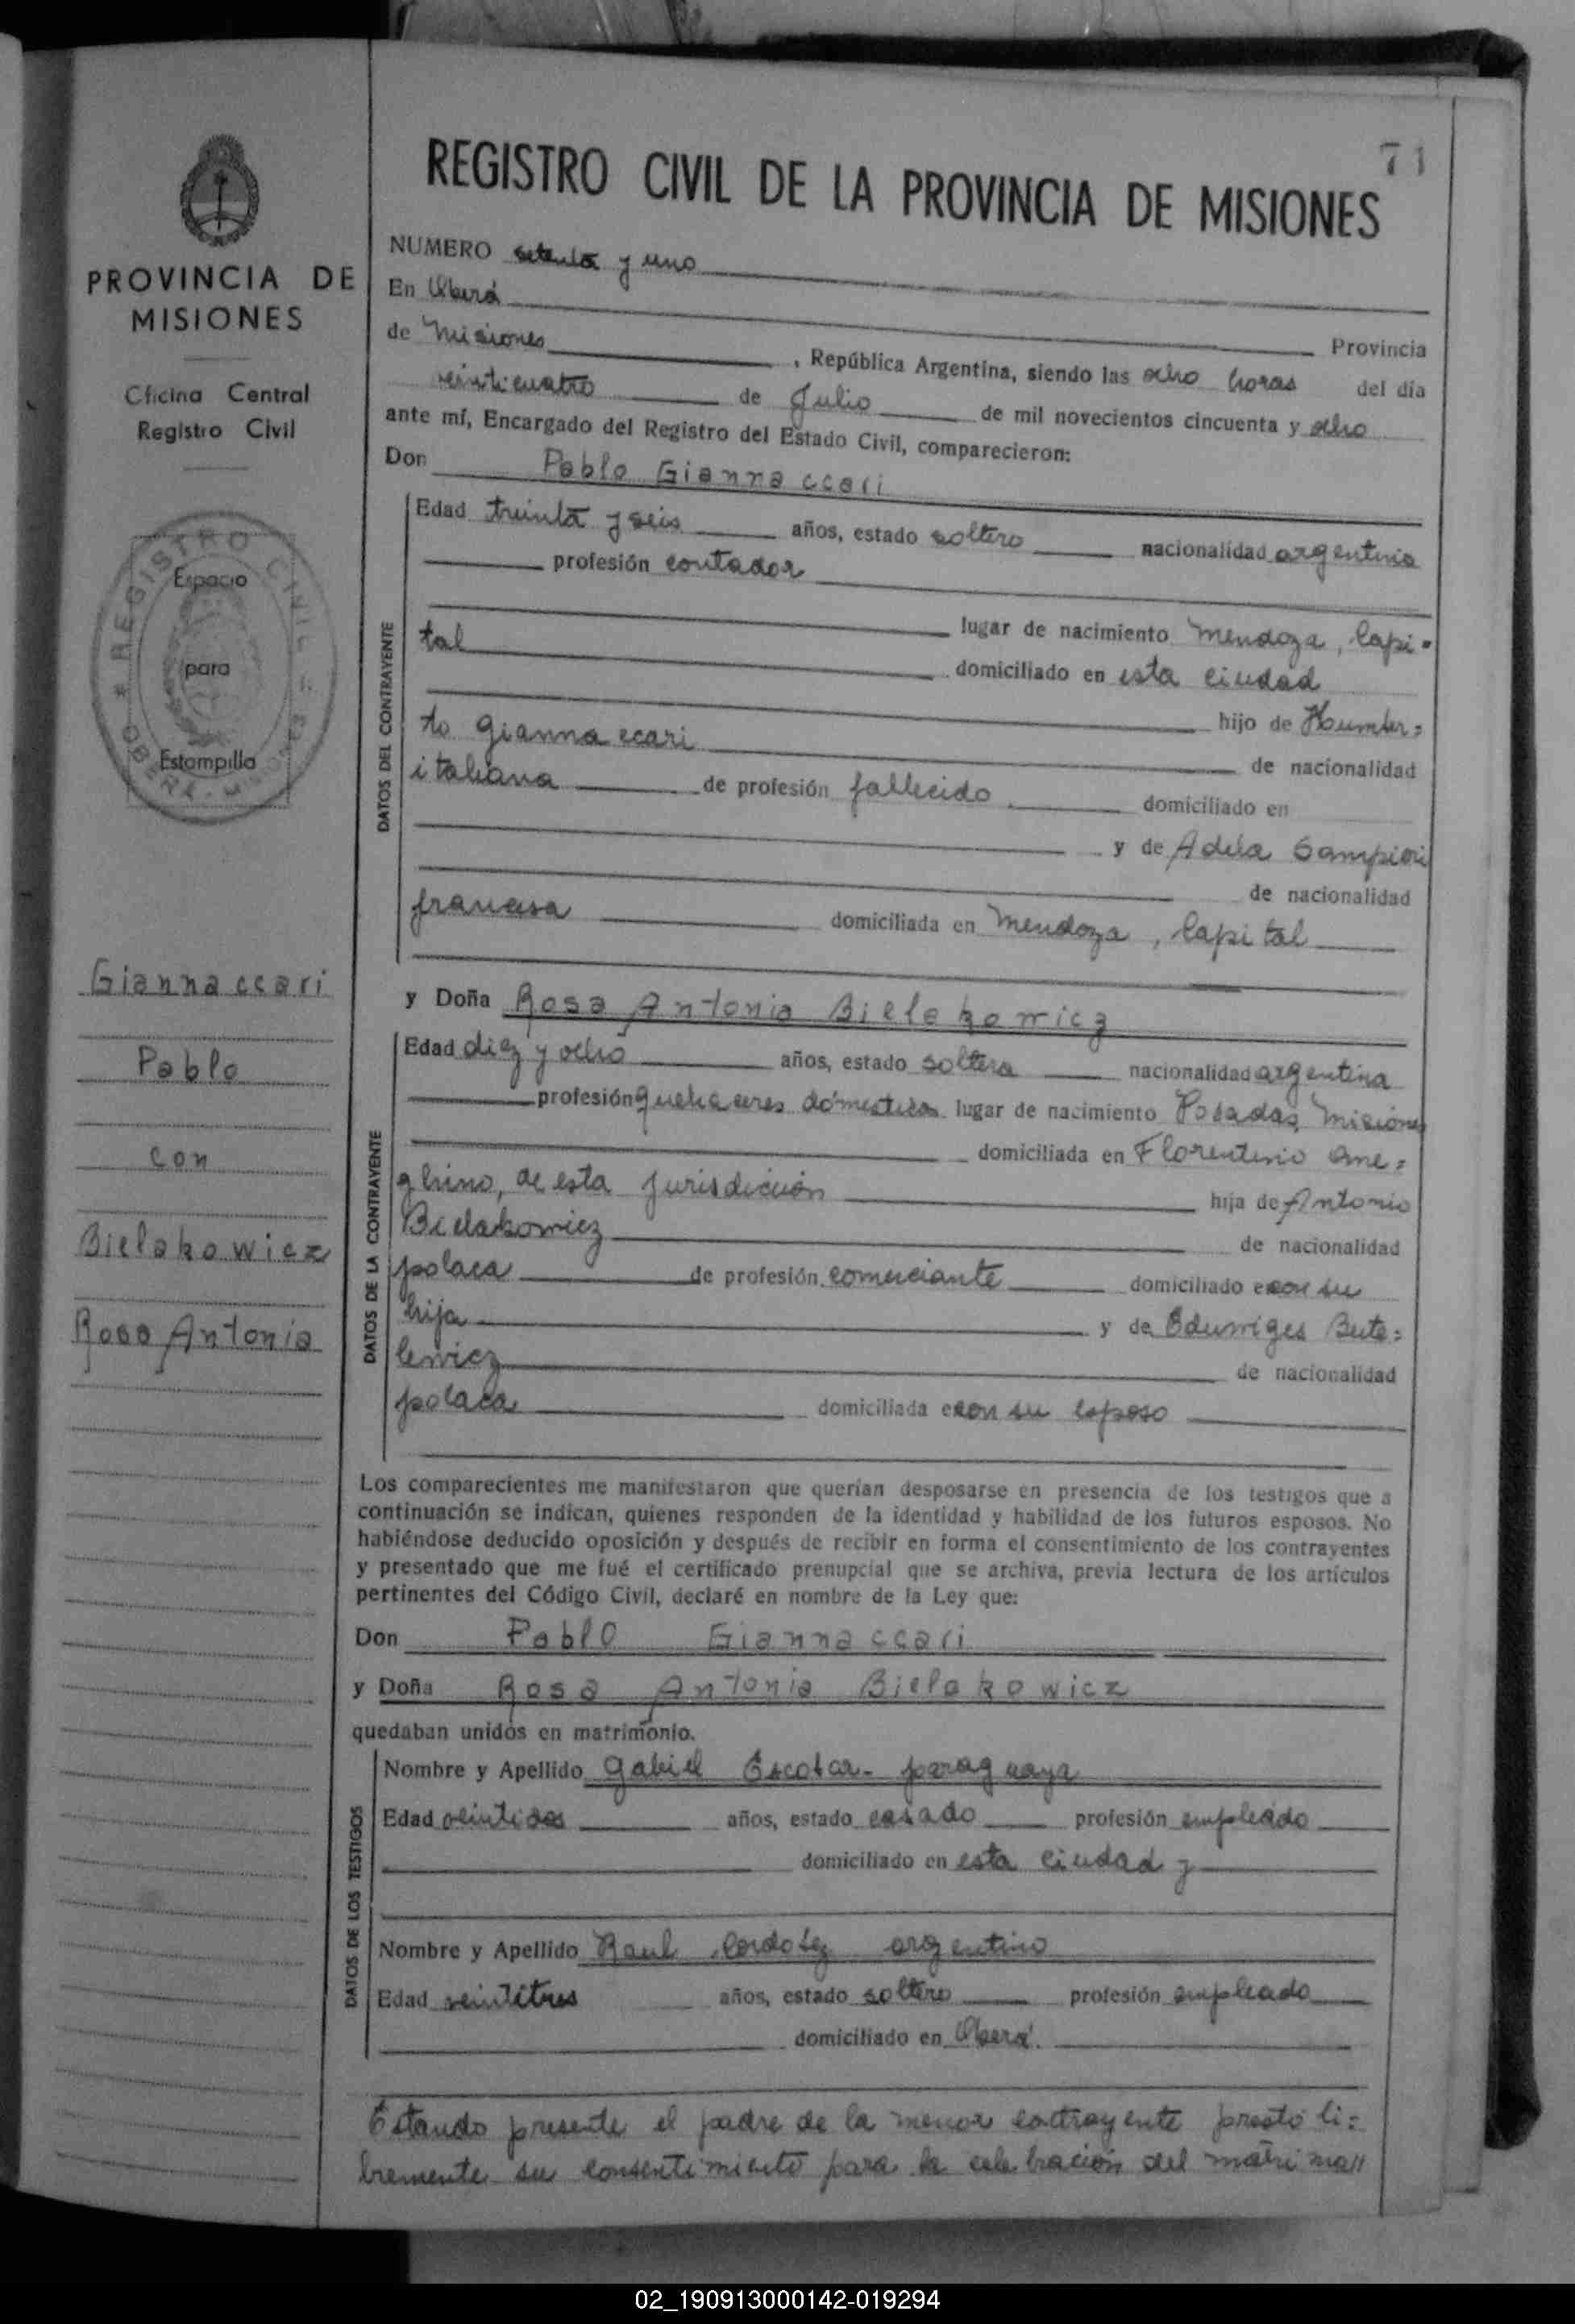 71
REGISTRO CIVIL DE LA PROVINCIA DE MISIONES
PROVINCIA DE
MISIONES
Oficina Central
Registro Civil
REGISTRO CIVIL
OBERÁ - MISIONES
Espacio
para
Estampilla
Giannaccari
Pablo
con
Bielakowicz
Rosa Antonia
NUMERO setenta y uno
En Oberá Provincia
de Misiones, República Argentina, siendo las ocho horas del día
veinticuatro de Julio de mil novecientos cincuenta y ocho
ante mí, Encargado del Registro del Estado Civil, comparecieron:
Don Pablo Giannaccari
DATOS DEL CONTRAYENTE
Edad treinta y seis años, estado soltero nacionalidad argentina
profesión contador
lugar de nacimiento Mendoza, Capi=
tal domiciliado en esta ciudad
hijo de Humber=
to Giannaccari de nacionalidad
italiana de profesión fallecido domiciliado en
y de Adela Sampieri
de nacionalidad
francesa domiciliada en Mendoza, Capital
y Doña Rosa Antonia Bielakowicz
DATOS DE LA CONTRAYENTE
Edad diez y ocho años, estado soltera nacionalidad argentina
profesión quehaceres domésticos lugar de nacimiento Posadas, Misiones
domiciliada en Florentino Ame=
ghino, de esta jurisdicción hija de Antonio
Bielakowicz de nacionalidad
polaca de profesión comerciante domiciliado con su
hija y de Eduwiges Bute=
lewicz de nacionalidad
polaca domiciliada con su esposo
Los comparecientes me manifestaron que querían desposarse en presencia de los testigos que a
continuación se indican, quienes responden de la identidad y habilidad de los futuros esposos. No
habiéndose deducido oposición y después de recibir en forma el consentimiento de los contrayentes
y presentado que me fué el certificado prenupcial que se archiva, previa lectura de los artículos
pertinentes del Código Civil, declaré en nombre de la Ley que:
Don Pablo Giannaccari
y Doña Rosa Antonia Bielakowicz
quedaban unidos en matrimonio.
DATOS DE LOS TESTIGOS
Nombre y Apellido Gabriel Escobar- paraguaya
Edad veintidos años, estado casado profesión empleado
domiciliado en esta ciudad y
Nombre y Apellido Raul Cordobez argentino
Edad veintitres años, estado soltero profesión empleado
domiciliado en Oberá.
Estando presente el padre de la menor contrayente prestó li=
bremente su consentimiento para la celebración del matrimo//
02_190913000142-019294